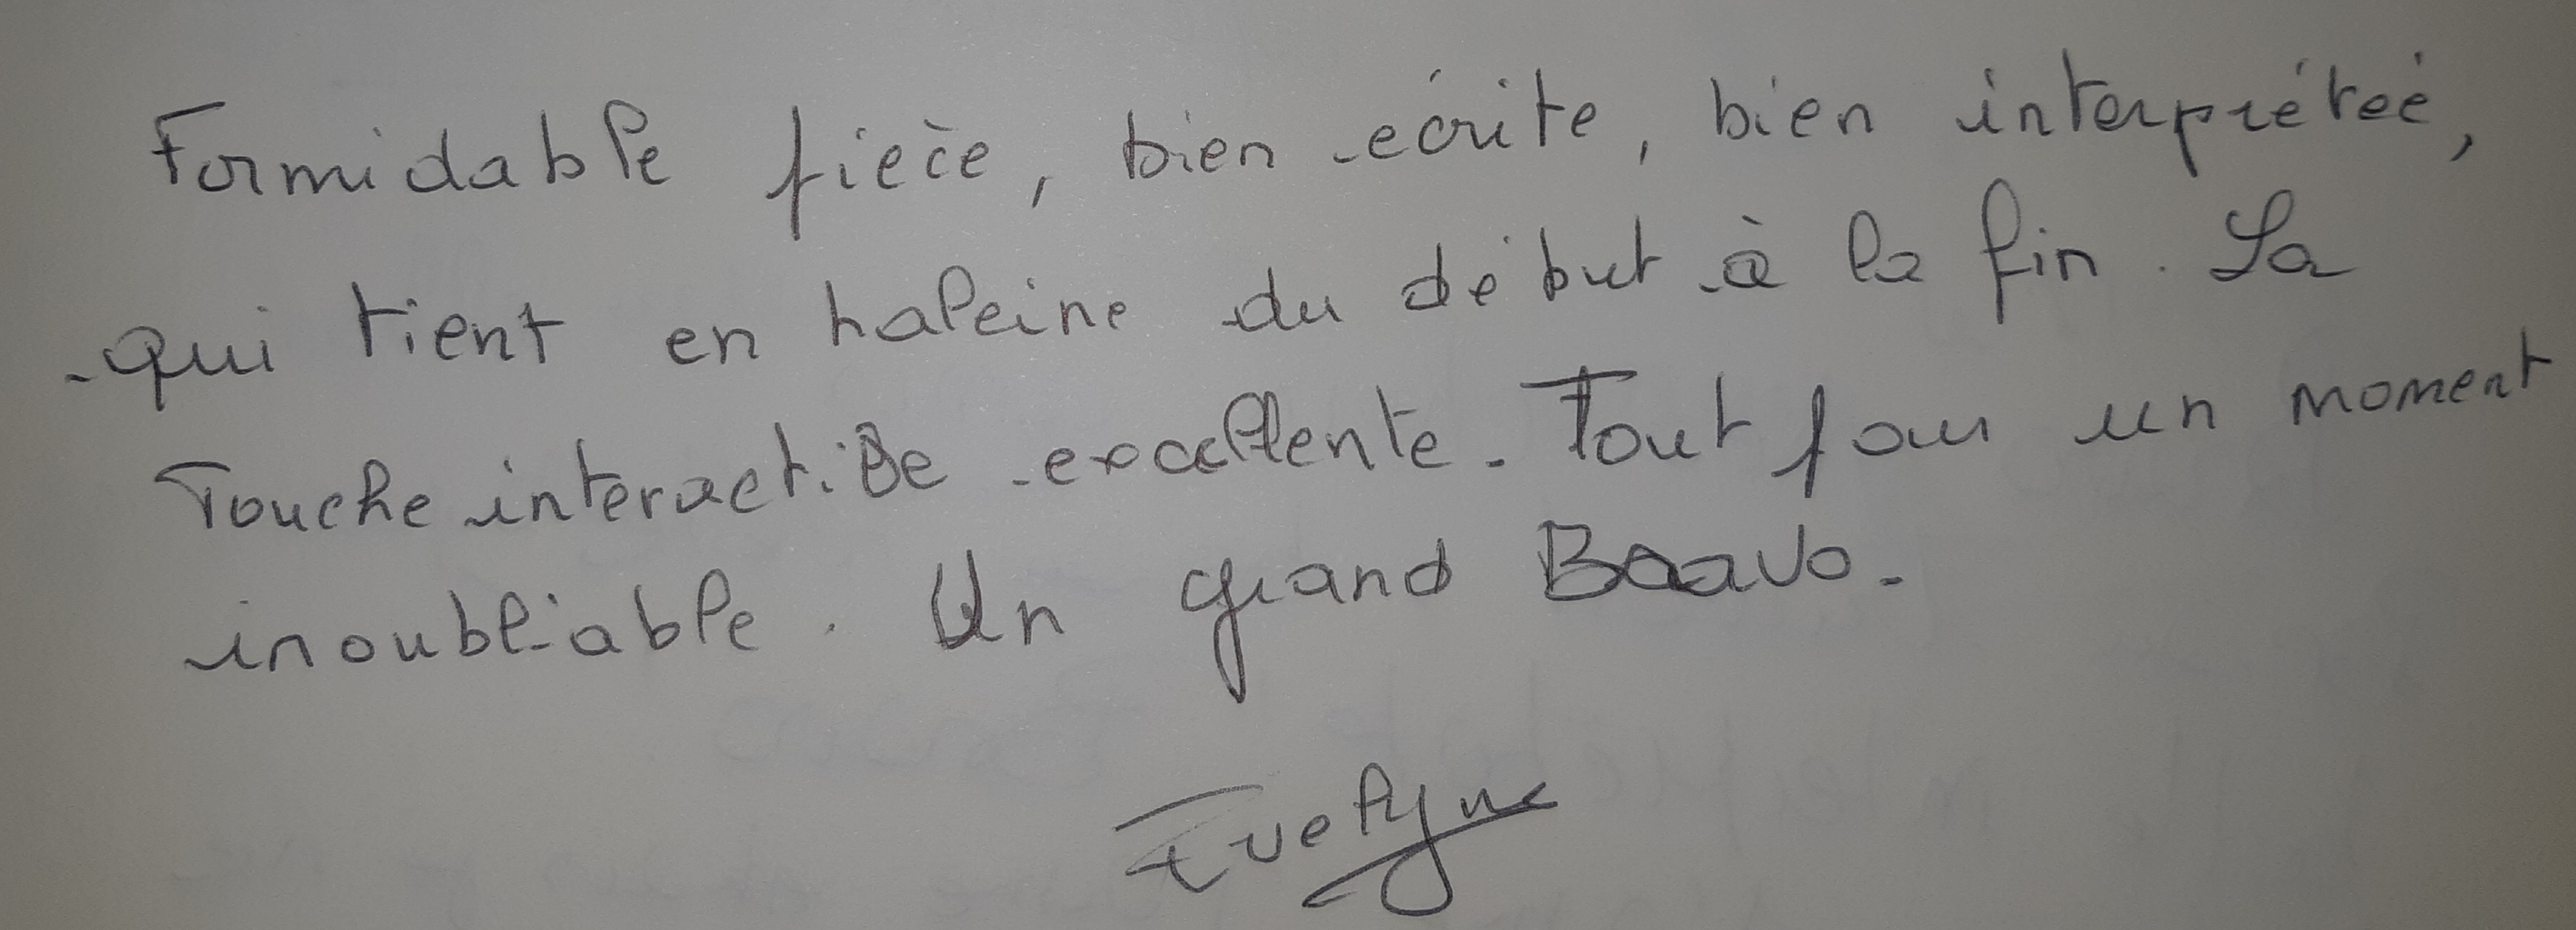 Formidable pièce, bien écrite, bien interprétée,
qui tient en haleine du début à la fin. La
Touche interactive excellente. Tout pour un moment
inoubliable. Un grand Bravo.
Evelyne